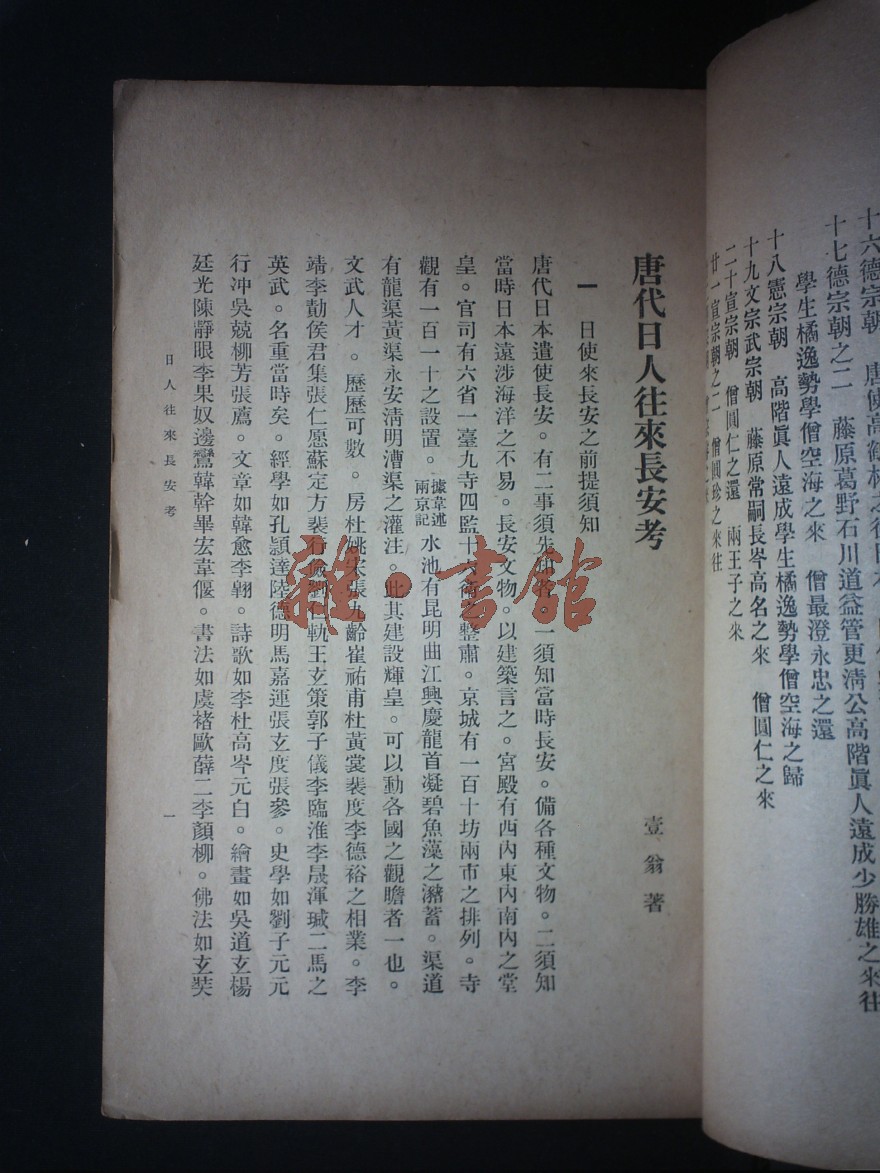 十六德宗朝
十七德宗朝之二　藤原葛野石川道益管更淸公高階眞人遠成少勝雄之來往
學生橘逸勢學僧空海之來　僧最澄永忠之還
十八憲宗朝　高階眞人遠成學生橘逸勢學僧空海之歸
十九文宗武宗朝　藤原常嗣長岑高名之來　僧圓仁之來
二十宣宗朝　僧圓仁之還　兩王子之來
廿一宣宗朝之二　僧圓珍之來往
唐代日人往來長安考
壹翁著
一　日使來長安之前提須知
唐代日本遣使長安。有二事須先知者。一須知當時長安。備各種文物。二須知
當時日本遠涉海洋之不易。長安文物。以建築言之。宮殿有西內東內南內之堂
皇。官司有六省一臺九寺四監十六衛之整肅。京城有一百十坊兩市之排列。寺
觀有一百一十之設置。據韋述兩京記水池有昆明曲江興慶龍首凝碧魚藻之瀦蓄。渠道
有龍渠黃渠永安淸明漕渠之灌注。此其建設輝皇。可以動各國之觀瞻者一也。
文武人才。歷歷可數。房杜姚宋張九齡崔祐甫杜黃裳裴度李德裕之相業。李
靖李勣侯君集張仁愿蘇定方裴行儉劉仁軌王玄策郭子儀李臨淮李晟渾瑊二馬之
英武。名重當時矣。經學如孔頴達陸德明馬嘉運張玄度張參。史學如劉子元元
行冲吳兢柳芳張薦。文章如韓愈李翱。詩歌如李杜高岑元白。繪畫如吳道玄楊
廷光陳靜眼李果奴邊鸞韓幹畢宏韋偃。書法如虞褚歐薛二李顏柳。佛法如玄奘
日人往來長安考
一
雜·書館